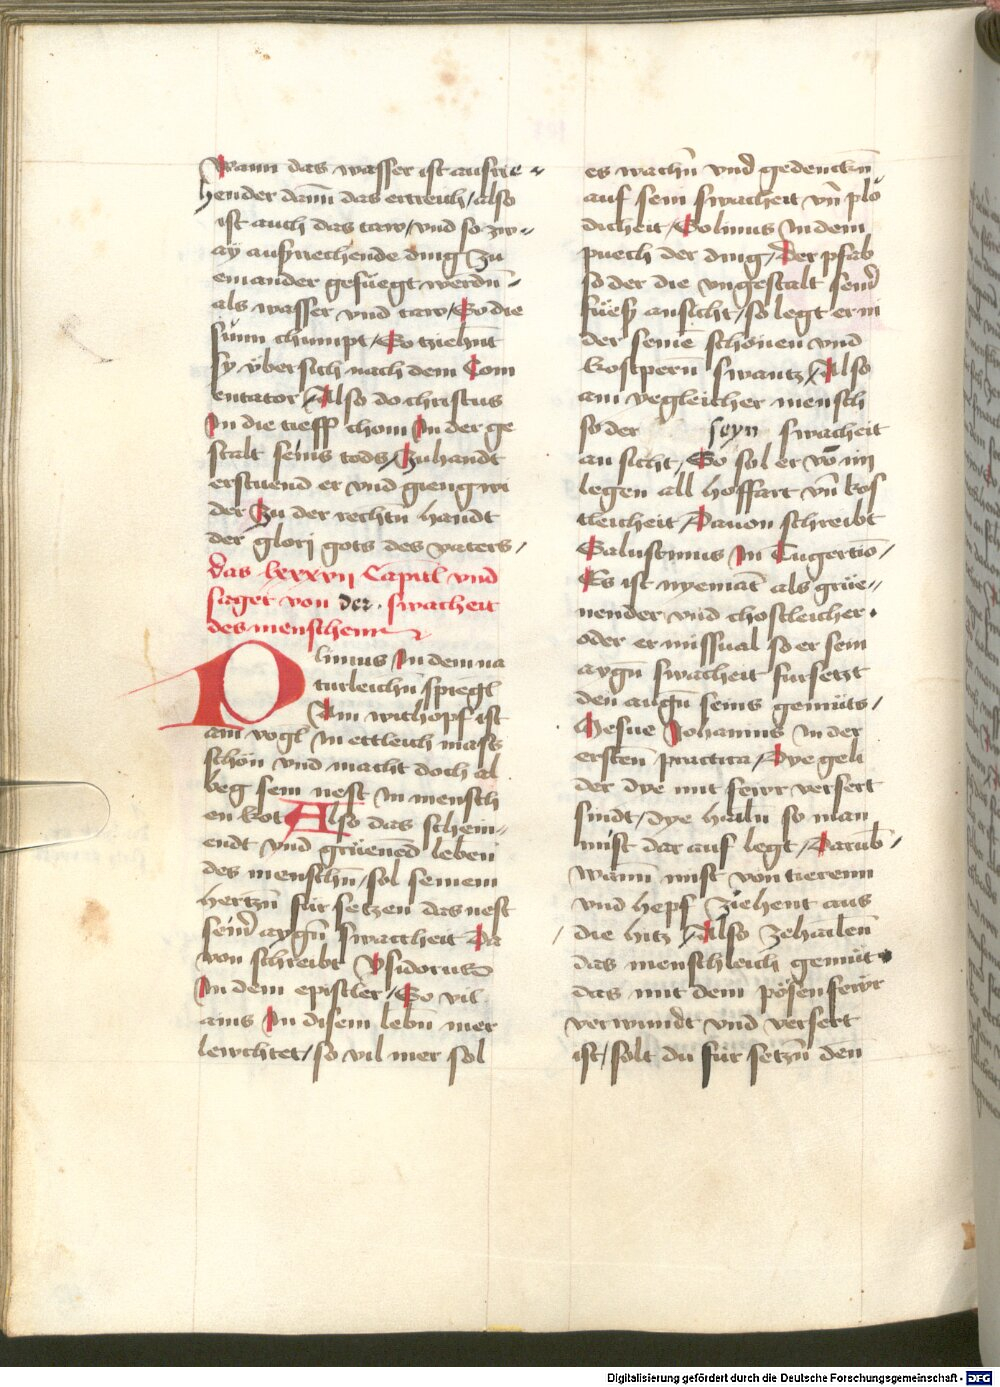 Wann das wasser ist aufrie⸗
hender dann̄ das erreich / also
ist auch das taw / vnd so zw⸗
ay aufriechende ding zu
einander gefüegt werdn̄ ⸗
als wasser vnd taw / So die
sunn chumpt / So tziehn̄t
sy übersich nach dem Com
entator / Also do christus
In die tieff chom In der ge
stalt seins tods / Zuhandt
erstuend er vnd gieng wi
der zu der rechtn̄ handt
der glori gots des vaters /
das lxxxvij Capitl vnd
saget von der swacheit
des menschenn
Plinius In dem na
turleichn̄ spiegl
Ain withopf ist
ain vogl In ettleich mass
schön vnd macht doch al
beg sein nest In mensch
en kot Also das schein⸗
endt vnd grüenēd leben
des menschn̄ / sol seinem
hertzn̄ für setzen das nest
seinr̄ aygn̄ swachheit Da
von schreibt Ysidorus
In dem epistler / So vil
ains In disem lebn̄ mer
lewchtet / so vil mer sol
es wachn̄ vnd gedenckn̄
auf sein swacheit vn̄ plö⸗
dicheit / Solinus In dem
puech der ding / Der pfab
so der die vngestalt seinr̄
füess ansicht / so legt er ni
der seinē schönen vnd
kostpern̄ swantz / Also
ain yegleicher mensch
so der seyn swacheit
an sicht / So sol er vō im
legen all hoffart vn̄ kös
tleicheit / Dauon schreibt
Salustinus In Iugertiō /
Es ist nyemāt als grüe⸗
nender vnd chostleicher
oder er missual so er sein
aygn̄ swacheit fürsetzt
den augn̄ seins gemüts /
Mesue Iohannis In der
ersten̄ practica / Dye geli
der dye mit feivr versert
sindt / dye hailn̄ so man
mist dar auf legt / Darūb /
wann̄ mist von tierenn
vnd hepf ziehent aus
die hitz / Also zehailen̄
das menschleich gemüt
das mit dem pösen fewr
verwundt vnd versert
ist / solt du für setzn̄ den
Digitalisierung gefördert durch die Deutsche Forschungsgemeinschaft - DFG